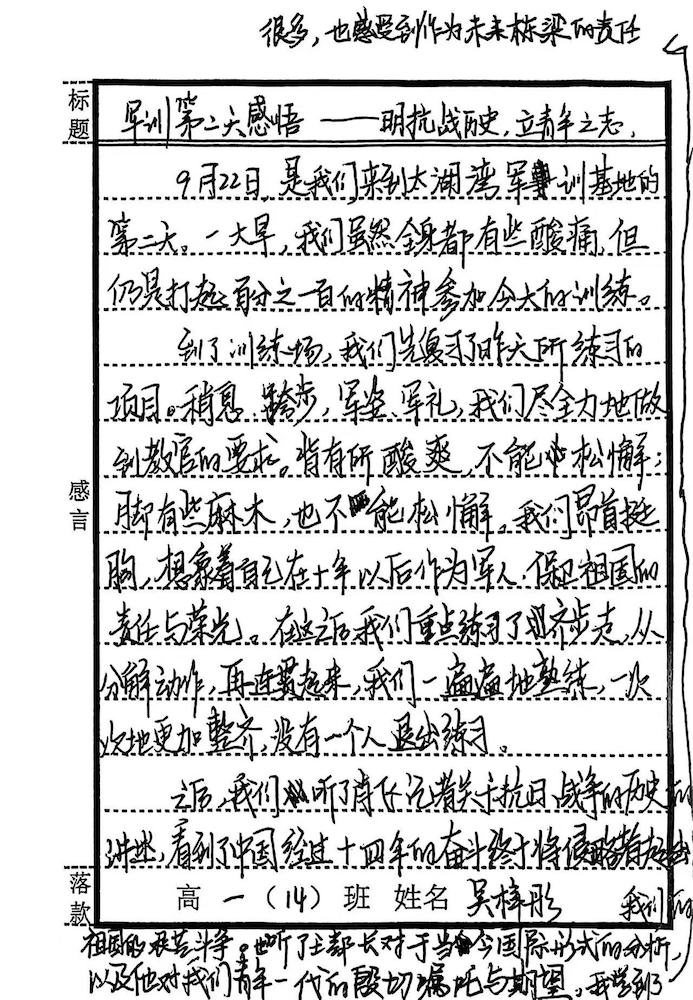 标题
军训第二天感悟 ——明抗战历史,立青年之志.
感言
9月22日,是我们来到太湖湾军训基地的
第二天。一大早,我们虽然全身都有些酸痛,但
仍是打起百分之一百的精神参加今天的训练。
到了训练场,我们先复习了昨天所练习的
项目。稍息、跨步,军姿、军礼,我们尽全力地做
到教官的要求。背有所酸爽,不能松懈;
脚有些麻木,也不能松懈。我们昂首挺
胸,想象着自己在十年以后作为军人.保卫祖国的
责任与荣光。在这之后我们重点练习了齐步走,从
分解动作,再连贯起来,我们一遍遍地熟练,一次
次地更加整齐,没有一个人退出练习。
之后,我们听了前任记者关于抗日战争的历史的
讲述,看到了中国经过十四年的奋斗终于将侵略者赶出
我们的
祖国的艰苦斗争。也听了王部长对于当今国际形式的分析,
以及他对我们青年一代的殷切嘱托与期望。我学到了
很多,也感受到作为未来栋梁的责任
落款
高一(14)班 姓名 吴梓彤